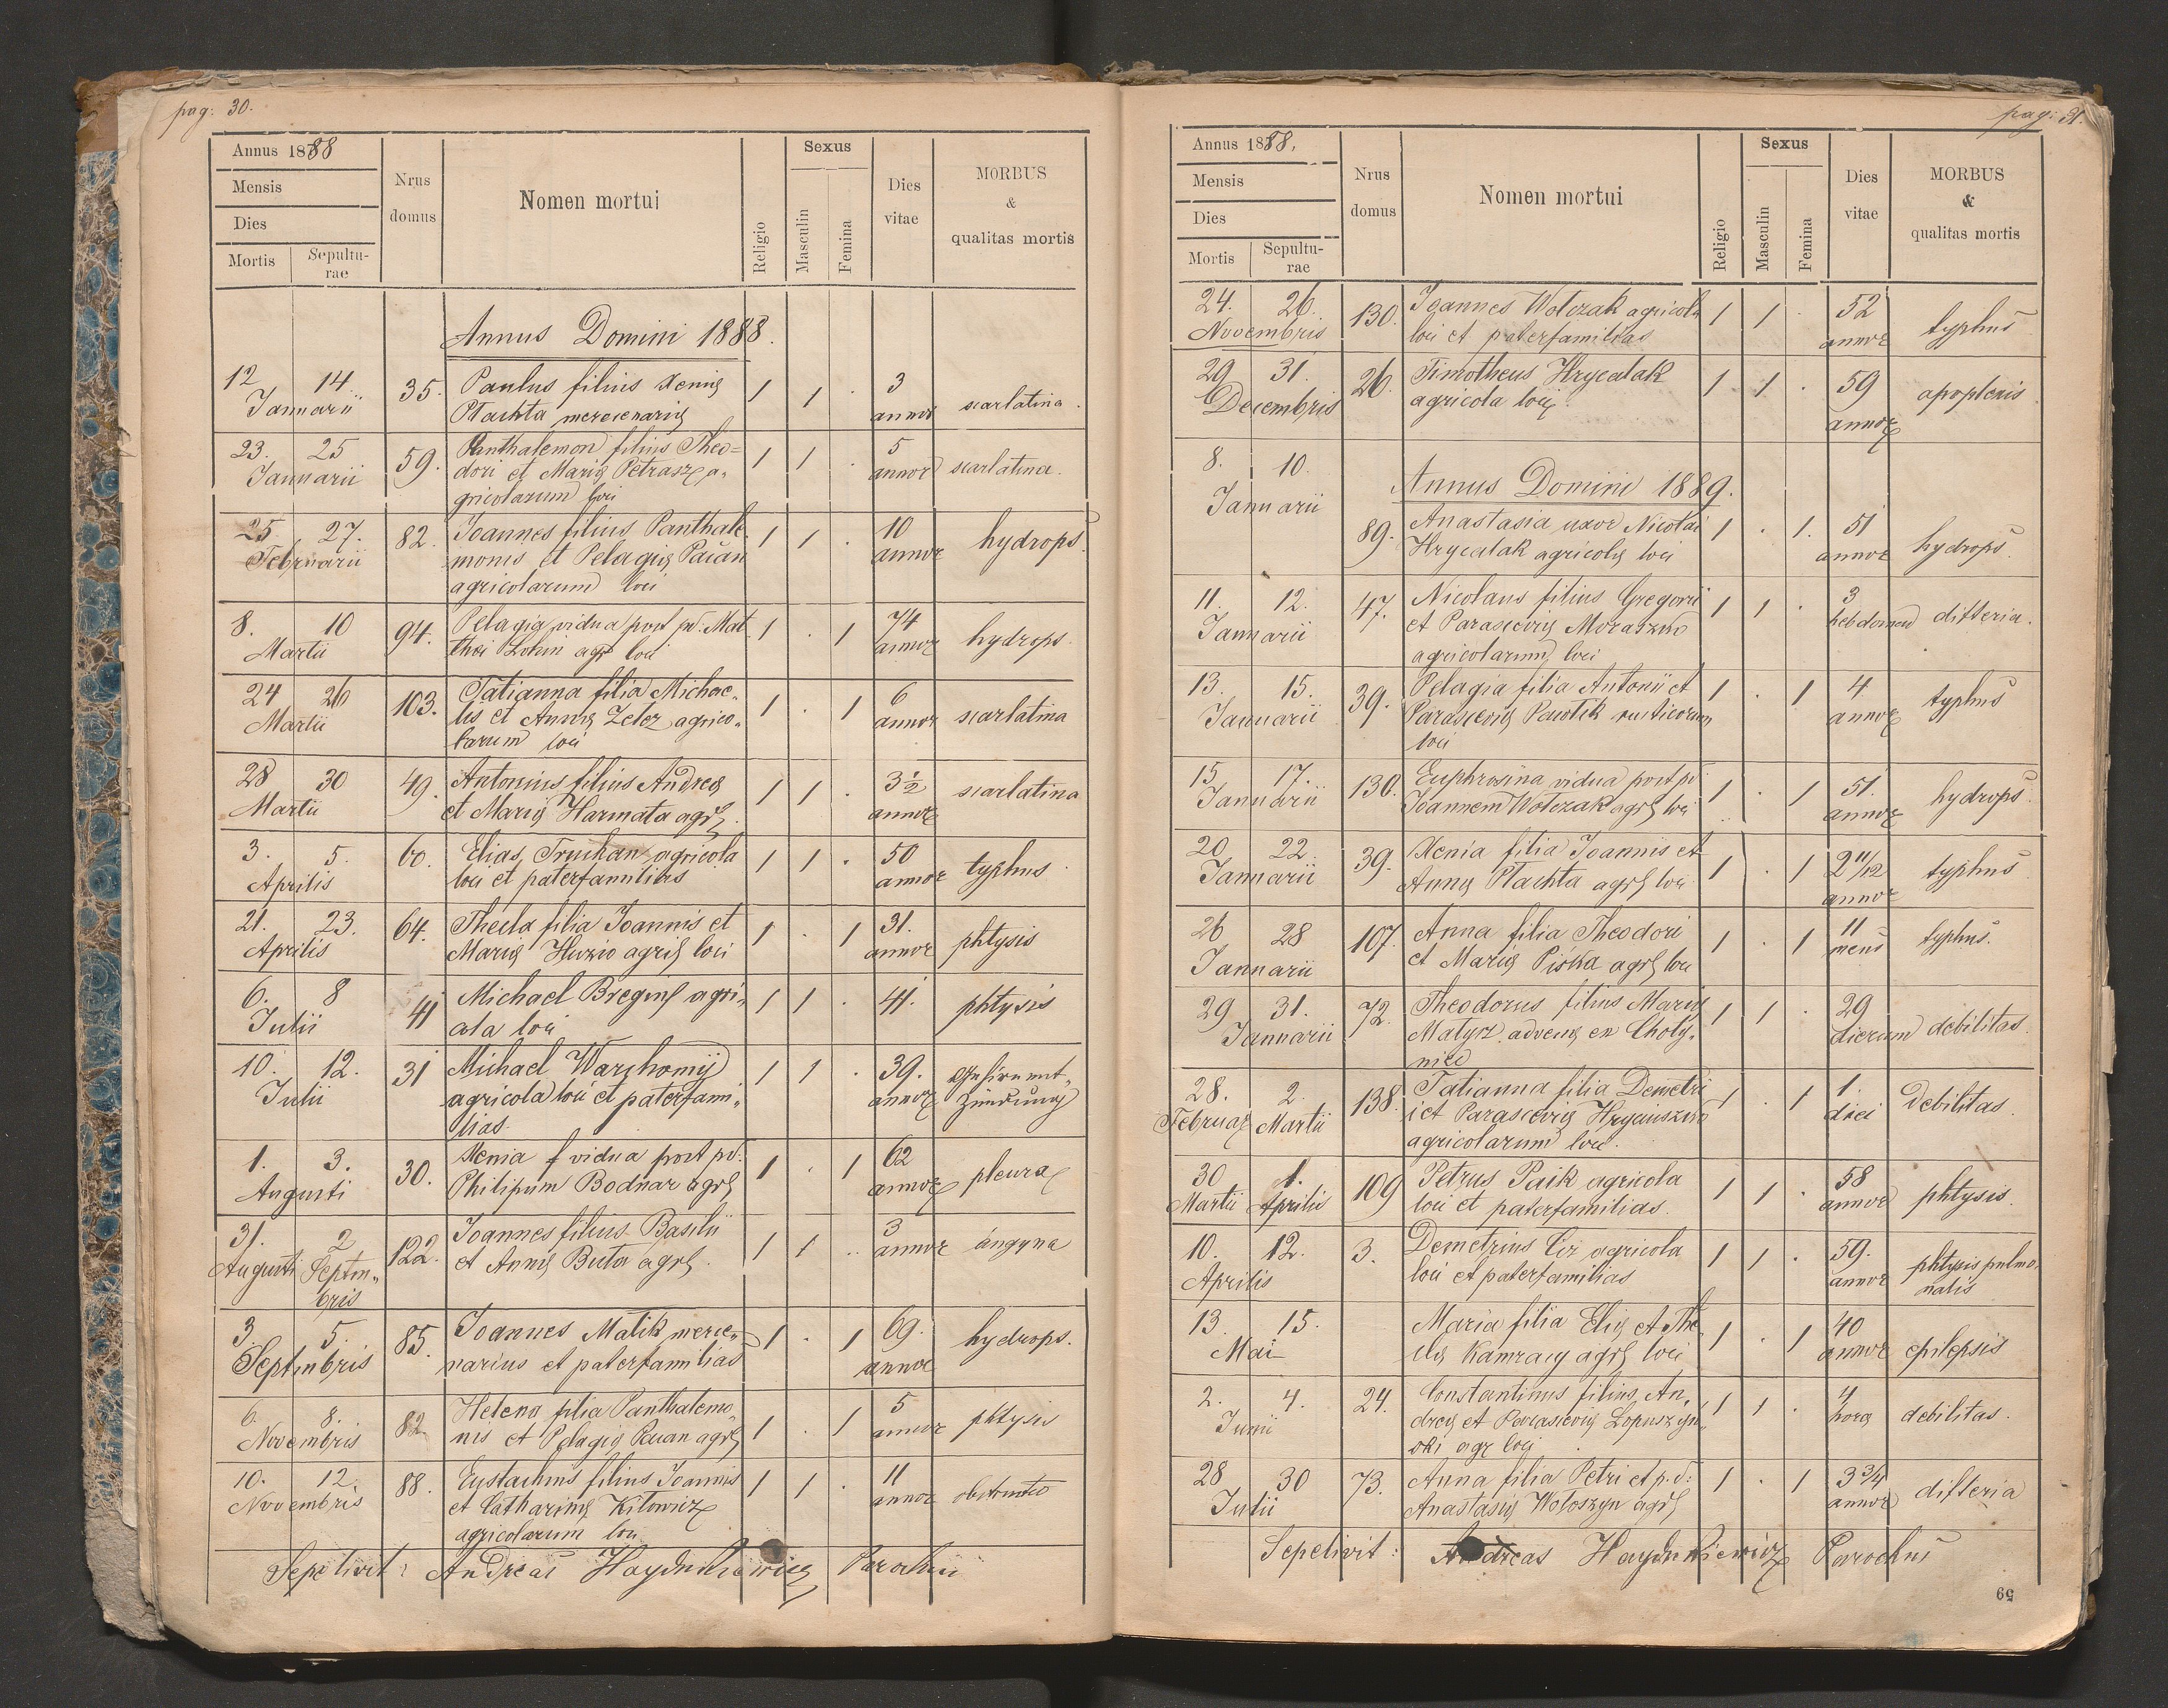 pag: 30.
Annus 1888
Mensis
Dies
Mortis Sepultu-
rae
Nrus
domus
Nomen mortui
Religio
Sexus
Masculin
Femina
Dies
vitae
MORBUS
&
qualitas mortis
Annus Domini 1888.
12 14. 35. Paulus filius Xenię 1 1 . 3
Januarii Płachta mercenarię annor scarlatina.
23. 25 59. Panthalemon filius Theo= 1 1 . 5
Januarii dori et Marię Petrasz a- annor scarlatina.
gricolarum loci
25 27. 82. Joannes filius Panthale- 1 1 . 10 hydrops.
Februarii monis et Pelagię annor
agricolarum loci
8. 10 94. Pelagia vidua post pd: Mat 1 . 1 74 hydrops.
Martii thei agr loci annor
24 26 103. Tatianna filia Michae- 1 . 1 6 scarlatina
Martii lis et Annę Zelez agrico- annor
larum loci
28 30 49. Antonius filius Andreę 1 1 . 3½ scarlatina
Martii et Marię Harmata agrę annor
3. 5. 60. Elias Truchan agricola 1 1 . 50 typhus.
Aprilis loci et paterfamilias annor
21. 23. 64. Thecla filia Joannis et 1 . 1 31. phtysis
Aprilis Marię agrię loci annor
6. 8 41 Michael agri- 1 1 . 41. phtysis
Julii cola loci
10. 12. 31 Michael 1 1 . 39.
Julii agricola loci et paterfami- annor
lias.
1. 3. 30. Xenia vidua post pd. 1 . 1 62 pleura
Augusti Philipum Bodnar agrę annor
31. 2 122. Joannes filius Basilii 1 1 .. 3 angyna
Augusti Septm- et Annę Buta agrę. annor
bris
3. 5. 85. Joannes Malik merce- 1 . 1 69. hydrops.
Septmbris narius et paterfamilias annor
6. 8. 82. Helena filia Panthalemo- 1 . 1 5 phtysis
Novembris nis et Pelagię agrę annor
10. 12. 88. Eustachius filius Joannis 1 1 . 11
Novembris et Catharinę Kitowicz annor
agricolarum loci
Sepelivit: Andreas Haydukiewicz Parochus
pag: 31.
Annus 1888.
Mensis
Dies
Mortis Sepultu-
rae
Nrus
domus
Nomen mortui
Religio
Sexus
Masculin
Femina
Dies
vitae
MORBUS
&
qualitas mortis
24. 26. 130. Joannes Wołczak agricola 1 1 . 52 typhus
Novembris loci et paterfamilias annor
29 31. 26. Timotheus Hrycalak 1 1 . 59
Decembris agricola loci. annor
8. 10. Annus Domini 1889.
Januarii
89. Anastasia uxor Nicolai 1 . 1. 51 hydrops.
Hrycalak agricolę loci annor
11. 12. 47. Nicolaus filius Gregorii 1 1 . 3 difteria.
Januarii et Parascevię Moraszko hebdomad
agricolarum loci
13. 15. 39. Pelagia filia Antonii et 1 . 1 4 typhus
Januarii Parascevię rusticorum annor
loci
15 17. 130. Euphrosina vidua post pd 1 . 1 51. hydrops.
Januarii Joannem Wołczak agrę loci annor
20 22. 39. Xenia filia Joannis et 1 . 1 2 11/12 typhus
Januarii Annę Płachta agrę loci annor
26 28 107. Anna filia Theodori 1 . 1 11 typhus.
Januarii et Marię Piska agrę loci mens
29 31. 72. Theodorus filius Marię 1 1 . 29 debilitas.
Januarii Matysz. advenę ex Choty- dierum
niec
28. 2. 138. Tatianna filia Demetri 1 . 1 1. Debilitas.
Februar Martii i et Parascevię diei
agricolarum loci.
30 1. 109 Petrus Paik agricola 1 1 . 58 phtysis.
Martii Aprilis loci et paterfamilias. annor
10. 12. 3. Demetrius agricola 1 1 . 59. phtysis pulmo-
Aprilis loci et paterfamilias annor nalis
13. 15. Maria filia Elię et The- 1 . 1 40 epilepsis
Mai clę agrę loci annor
2. 4. 24. Constantinus filius An- 1 1 . 4 debilitas.
Junii dreę et Parascevię Łopuszyn- hora
ski agr loci
28 30 73. Anna filia Petri et p.d: 1 . 1 3 3/4 difteria
Julii Anastasię Wołoszyn agrę annor
Sepelivit: Andreas Haydukiewicz Parochus
59